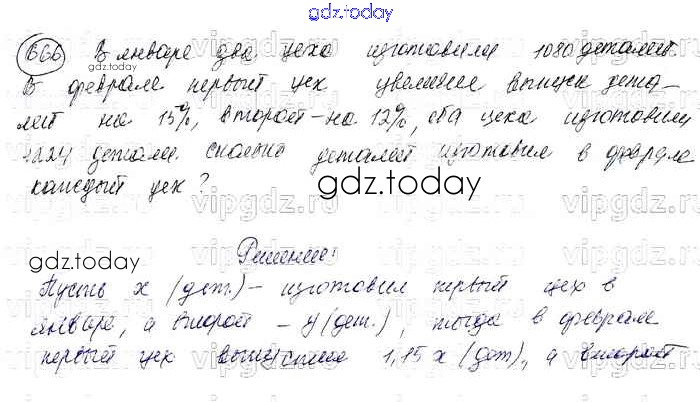 gdz.today
666 В январе два цеха изготовили 1080 деталей.
gdz.today
В феврале первый цех увеличил выпуск дета-
лей на 15%, второй – на 12%, оба цеха изготовили
1224 детали. Сколько деталей изготовил в феврале
каждый цех?
gdz.today
vipgdz.ru
Решение:
gdz.today
Пусть x (дет.) – изготовил первый цех в
январе, а второй – y (дет.), тогда в феврале
первый цех выпустил 1,15x (дет)., а второй